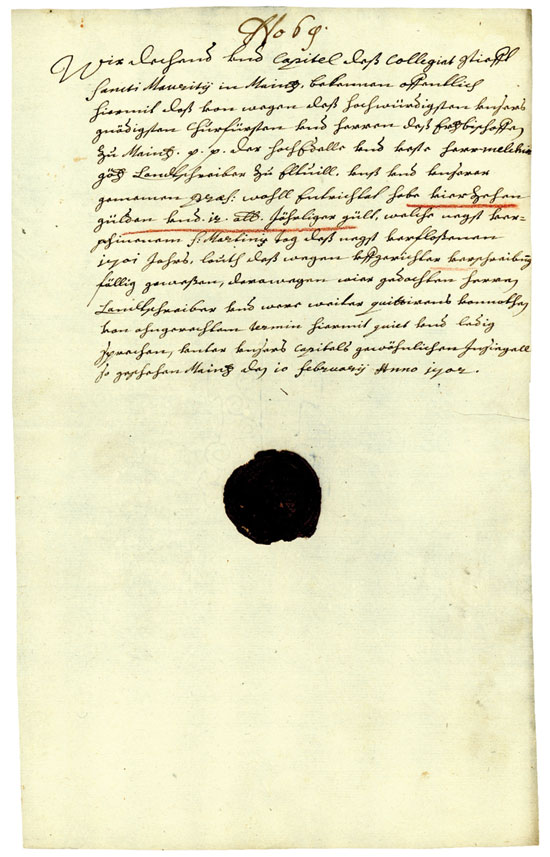 No 69.
Wir dechend vnd Capitel deß Collegiat Stieffts
Sancti Mauritij in Maintz, bekennen offentlich
hiermit daß von wegen deß hochwürdigsten vnsers
gnädigsten Churfürsten vnd herren deß Ertzbischoffen
zu Maintz. p. p. der hochEdelle vnd veste herr melchior
götz Landtschreiber zu Elltvill. vnß vnd vnserer
gemeinen præs: wohll Entrichtet habe vierzehen
gülden vnd 12. alb. Jährliger gült, welche negst ver=
schienenem S. Martinij tag deß negst verfloßenen
1701 Jahrs, lauth deß wegen vffgerichter verschreibung
fällig geweßen, derowegen wier gedachten herren
Landtschreiber vnd were weiter quitirens vonnöthen
von ohngerechtem termin hiermit quiet vnd ledig
sprechen, vnter vnsers Capitels gewöhnlichen Insiegell
so geschehen Maintz den 10 februarij Anno 1702.